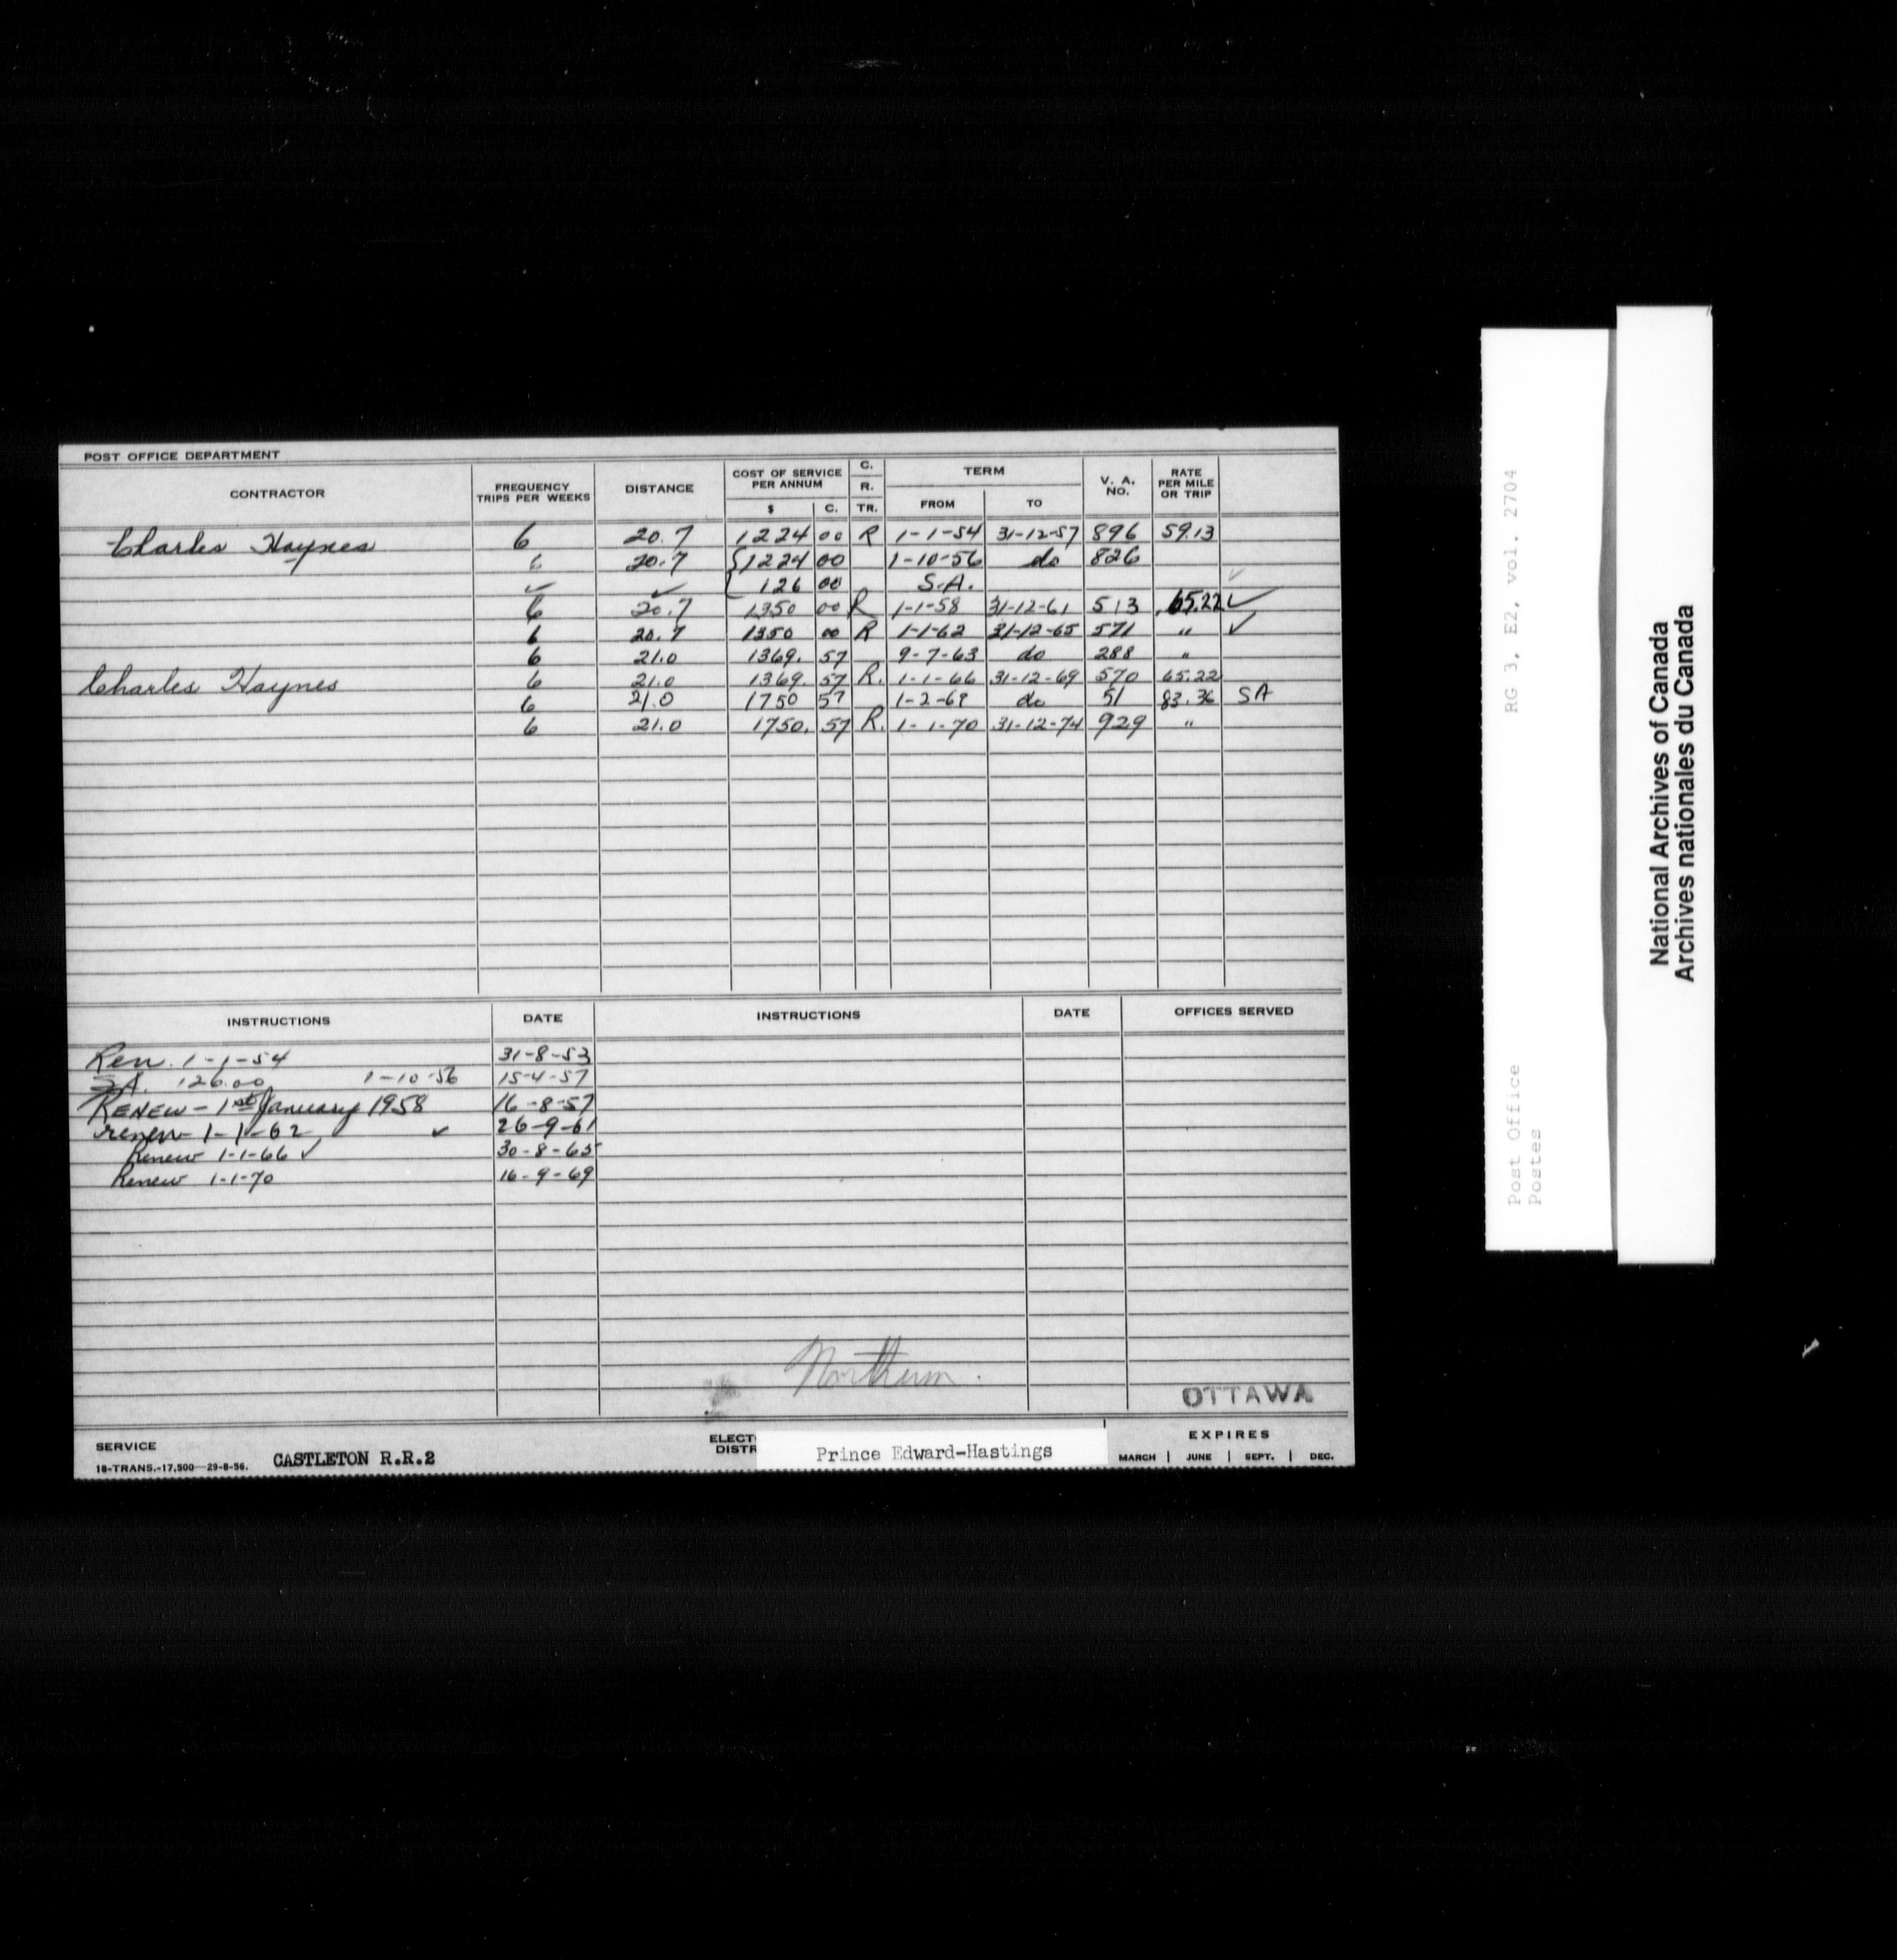 POST OFFICE DEPARTMENT
CONTRACTOR FREQUENCY TRIPS PER WEEKS DISTANCE COST OF SERVICE PER ANNUM $ C. C. R. TR. TERM FROM TO V. A. NO. RATE PER MILE OR TRIP
Charles Haynes 6 20.7 1224 00 R 1-1-54 31-12-57 896 59.13
6 20.7 1224 00 1-10-56 do 826
✓ ✓ 126 00 S.A. ✓
6 20.7 1350 00 R 1-1-58 31-12-61 513 65.22 ✓
6 20.7 1350 00 R 1-1-62 31-12-65 571 " ✓
6 21.0 1369. 57 9-7-63 do 288 "
Charles Haynes 6 21.0 1369. 57 R. 1-1-66 31-12-69 570 65.22
6 21.0 1750 57 1-2-69 do 51 83.36 SA
6 21.0 1750. 57 R. 1-1-70 31-12-74 929 "
INSTRUCTIONS DATE INSTRUCTIONS DATE OFFICES SERVED
Ren. 1-1-54 31-8-53
S.A. 126.00 1-10-56 15-4-57
RENEW - 1st January 1958 16-8-57
renew 1-1-62 ✓ 26-9-61
Renew 1-1-66 ✓ 30-8-65
Renew 1-1-70 16-9-69
Northum.
OTTAWA
SERVICE CASTLETON R.R.2 ELECT DISTR Prince Edward-Hastings EXPIRES
18-TRANS.-17,500—29-8-56. MARCH | JUNE | SEPT. | DEC.
RG 3, E2, vol. 2704
Post Office
Postes
National Archives of Canada
Archives nationales du Canada